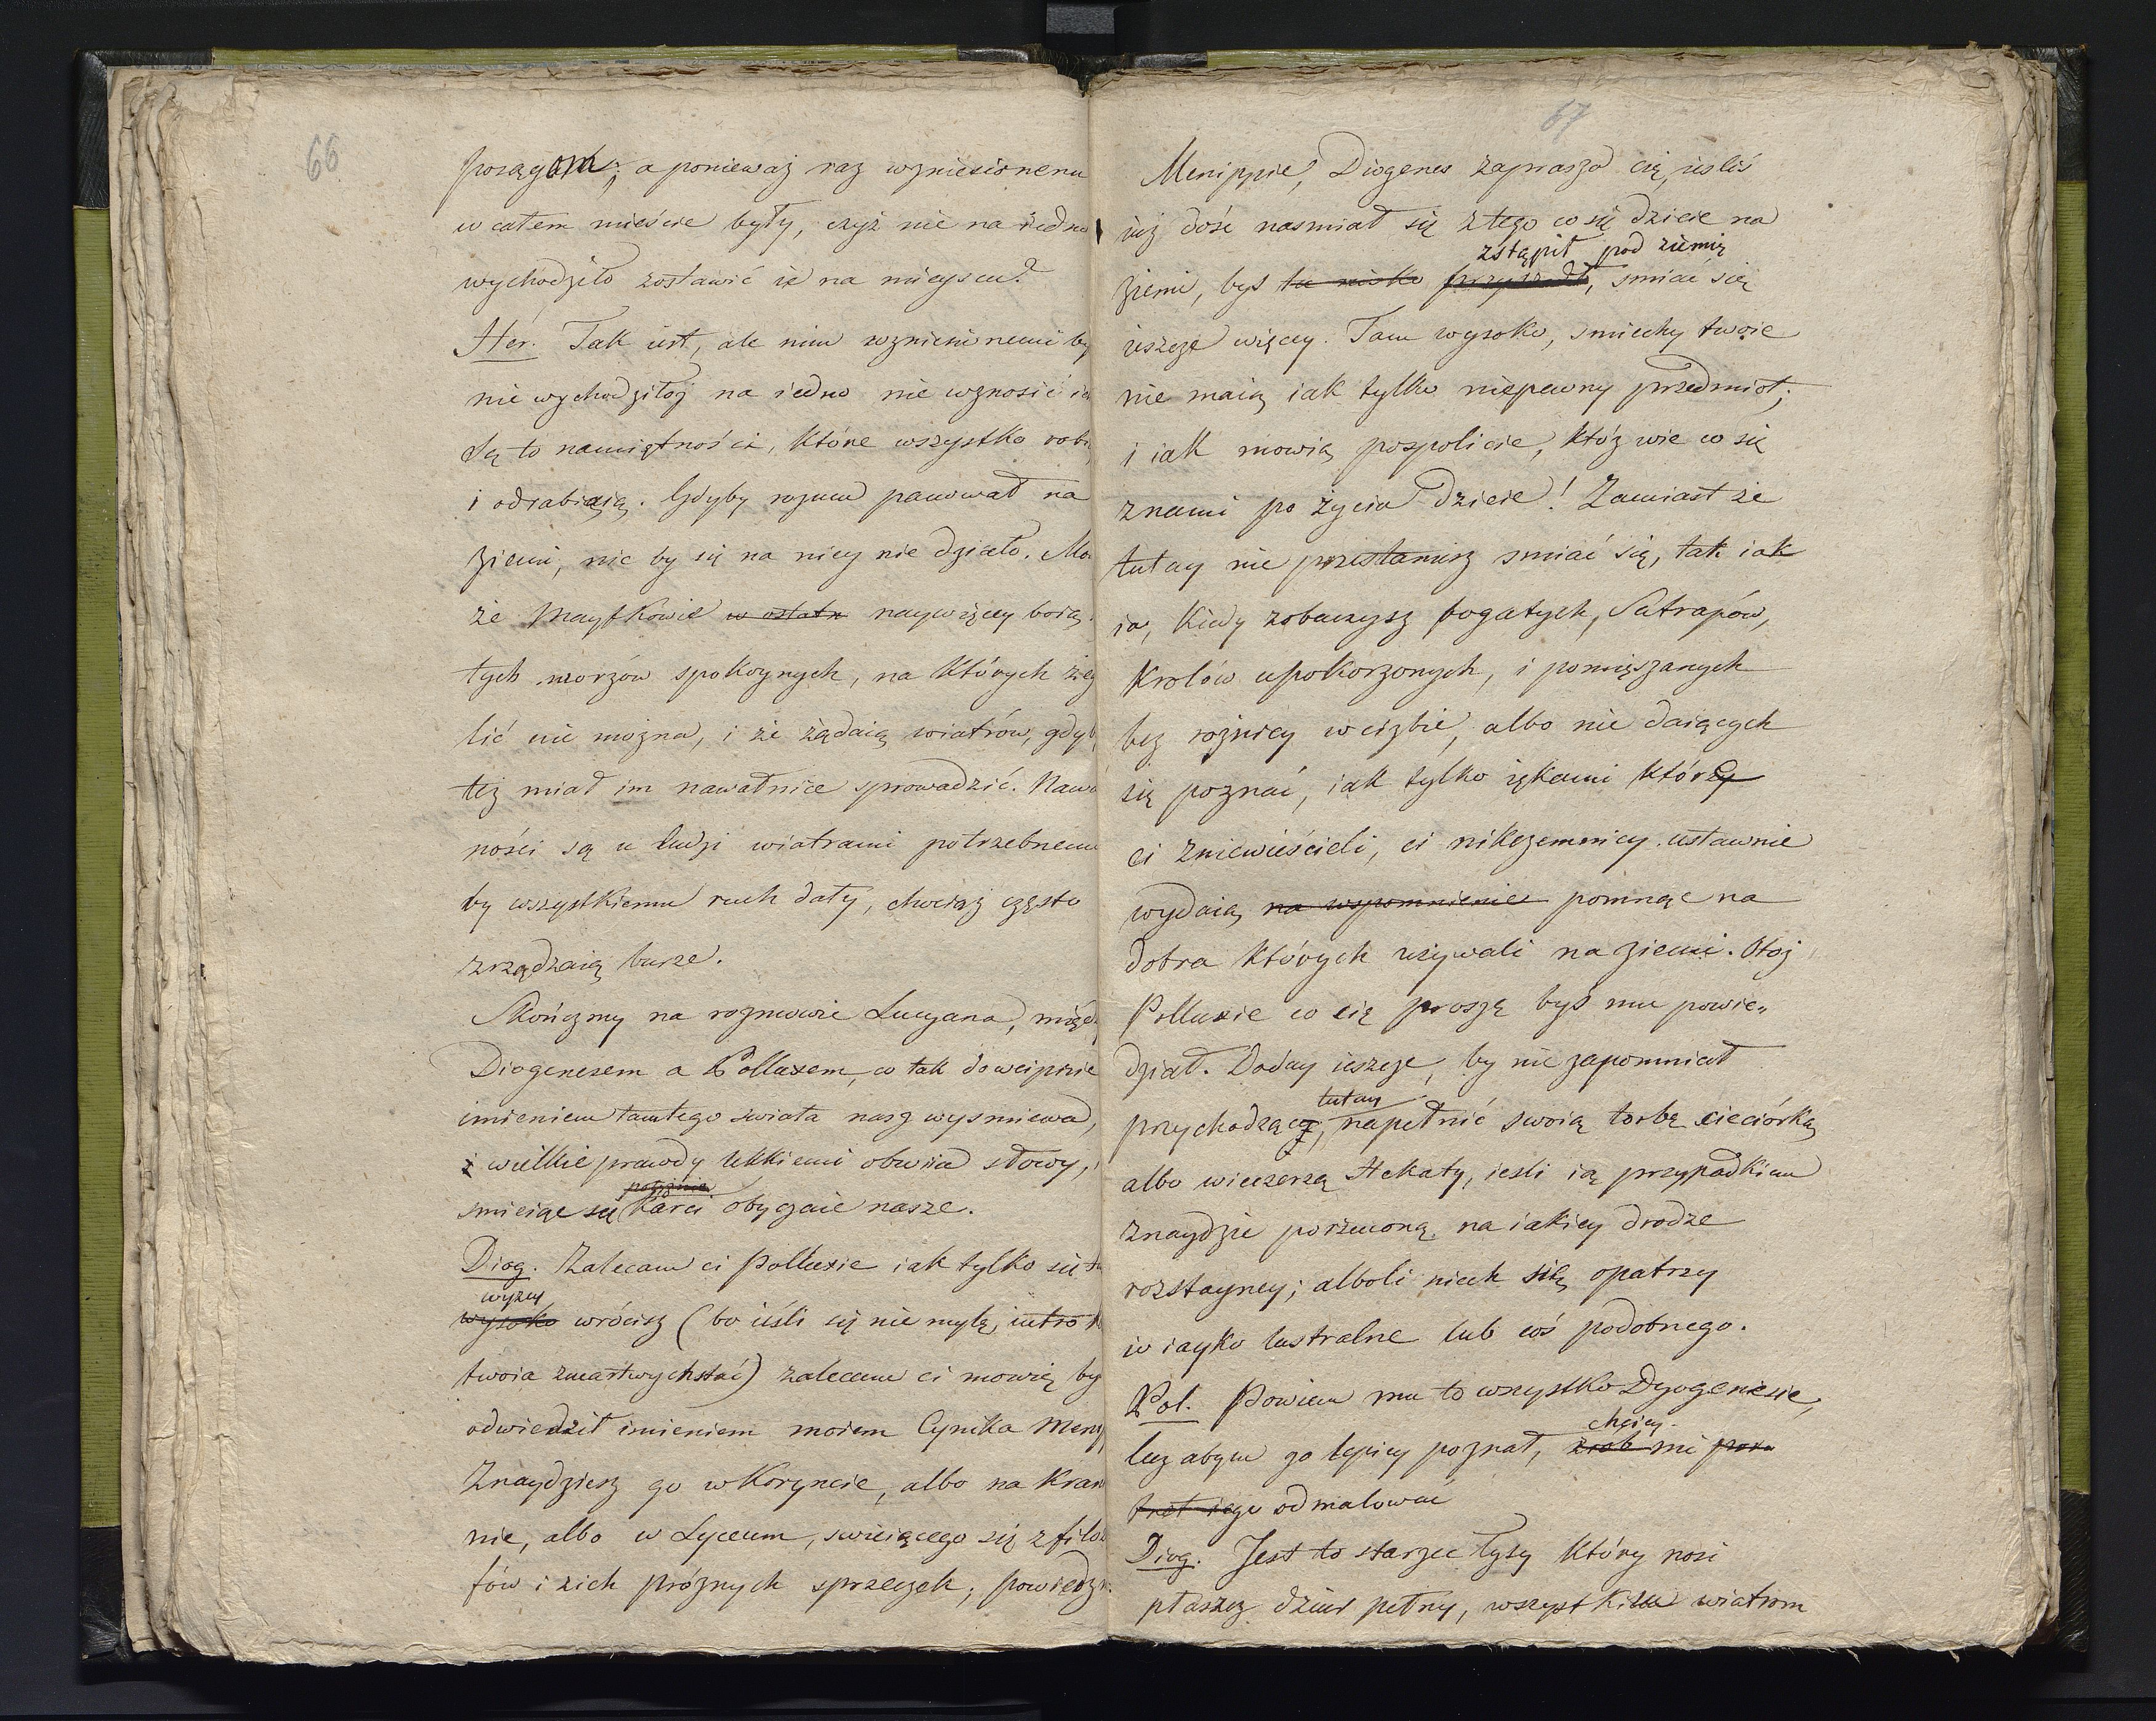 66
posągom; a ponieważ raz wzniesionemi
w całem mieście były, czyż nie na iedno
wychodziło zostawić ie na mieyscu?
Her. Tak iest, ale nim wzniesionemi by
nie wychodziłoż na iedno nie wznosić ich
Są to namiętności, które wszystko robią
i odrabiaią. Gdyby rozum panował na
ziemi, nic by się na niey nie działo. Mó
że Maytkowie w ostatn naywięcy boią
tych morzów spokoynych, na których żeg
lić nie można, i że żądaią wiatrów, gdyb
też miał im nawałnice sprowadzić. Namię
ności są u ludzi wiatrami potrzebnemi
by wszystkiemu ruch dały, chociaż często
zrządzaią burze.
Skończmy na rozmowie Lucyana, między
Diogenesem a Polluxem, co tak dowcipnie
imieniem tamtego świata nasz wysmiewa,
i wielkie prawdy lekkiemi obwiia słowy,
potężnie
smieiąc się karci obyczaie nasze.
Diog. Zalecam ci Polluxie iak tylko się tu
wyżey
wysoko wrócisz (bo ieśli się nie mylę, iutro
twoia zmartwychstać) zalecam ci mowię by
odwiedził imieniem moiem Cynika Menip
Znaydziesz go w Koryncie, albo na Kran
nie, albo w Lyceum, smieiącego się z filozo
fów i zich próżnych sprzeczek; powiedz m
67
Menippie, Diogenes zaprasza cię, iesliś
iuż dość nasmiał się z tego co się dzieie na
zstąpił pod ziemię
ziemi, byś tu nisko przyszedł, smiać się
ieszcze więcey. Tam wysoko, smiechy twoie
nie maią iak tylko niepewny przedmiot;
i iak mowią pospolicie, któż wie co się
znami po życiu dzieie! Zamiast że
tutay nie przestaniesz smiać się, tak iak
ia, kiedy zobaczysz bogatych, Satrapów,
Królów upokorzonych, i pomięszanych
bez rożnicy w ciżbie, albo nie daiących
się poznać, iak tylko iękami które
ci zniewieścieli, ci nikczemnicy ustawnie
wydaią na wspomnienie pomnąc na
dobra których używali na ziemi. Otoż
Polluxie co cię proszę byś mu powie„
dział. Doday ieszcze, by nie zapomniał
tutay
przychodząc, napełnić swoią torbę cieciórką
albo wieczerzą Hekaty, iesli ią przypadkiem
znaydzie porzuconą na iakiey drodze
rozstayney; alboli niech się opatrzy
w iayko lustralne lub coś podobnego.
Pol. Powiem mu to wszystko Dyogenesie,
chciey
lecz abym go lepiey poznał, zrób mi por
tret iego odmalować
Diog. Jest to starzec łysy który nosi
płaszcz dziur pełny, wszystkim wiatrom